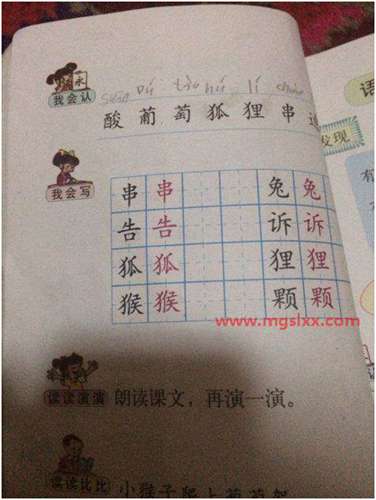 suān pú táo hú lí chuàn
我会认
酸 葡 萄 狐 狸 串
语
发现
我会写
串 串 兔 兔
告 告 诉 诉
狐 狐 狸 狸
猴 猴 颗 颗
有
www.mgslxx.com
读读演演 朗读课文，再演一演。
读读比比 小猴子爬上葡萄架